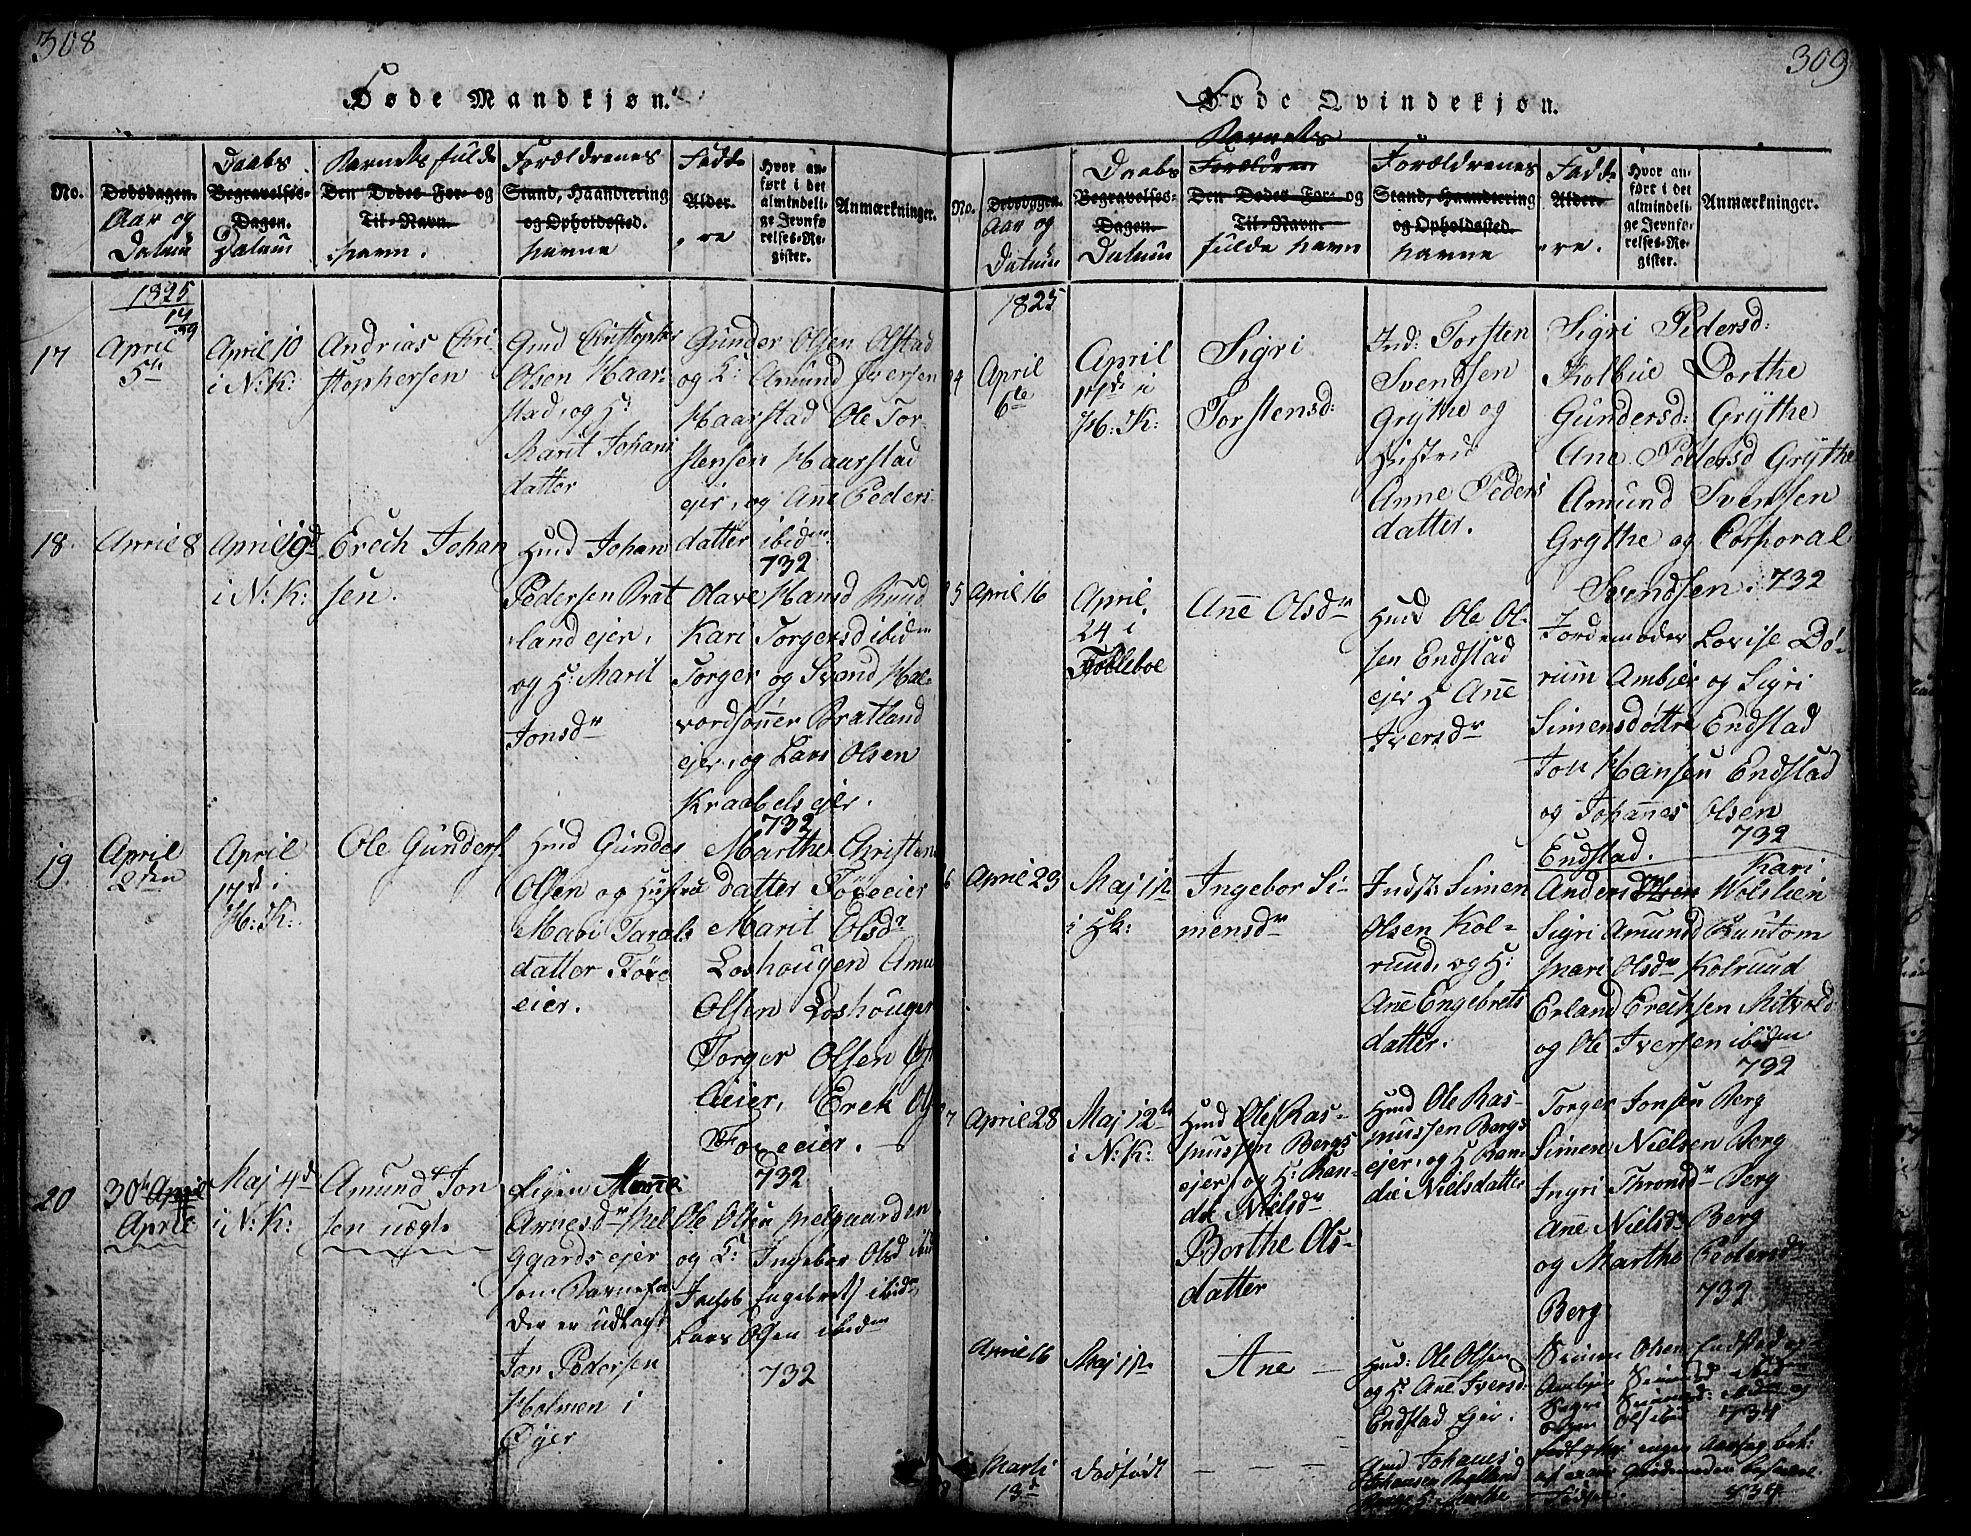 308
Døde Mandkjøn.
No.
Dødsdagen.
Aar og
Datum
Daabs
Begravelses-
Dagen.
Datum
Barnets fulde
Den Dødes For- og
Til-Navn.
Navn.
Forældrenes
Stand, Haandtering
og Opholdssted.
Navne
Fadde
Alder.
re
Hvor an-
ført i det
almindeli-
ge Jevnfø-
relses-Re-
gister.
Anmærkninger.
1825
17
April
5te
April 10
i N: K:
Andrias Chri-
stophersen
Gmd Christopher
Olsen Haar-
stad, og H:
Marit Johans
datter
Gunder Olsen Olstad
og L: Amund Iversen
Haarstad Ole Tor-
stensen Haarstad
ejer, og Ane Peders
datter ibidm
732
18.
April 8
April 9d
i N: K:
Erech Johan
sen.
Hmd Johan
Pedersen Brat
land ejer,
og H: Marit
Jonsdr
Olave Hansd Ruud
Kari Torgersd ibidm
Torger og Svend Hal-
vordsönner Bratland
ejer, og Lars Olsen
Kraabels ejer.
732
19.
April
April
17d i
H: K:
Ole Gunders.
Hmd Gunder
Olsen og Hustru
Mari Tarals
datter Före
eier.
Marthe Christens
datter Föreeier
Marit Olsdr
Loshougen Amu
Olsen Loshougen
Torger Olsen
eier, Erek
Foreeier.
732
20
30te April
April
Maj 4d
i N: K:
Amund Jon
sen uægt.
Pigen
Arnesdr Mel
ggards ejer
som Barnefa
der er udlagt
Jon Pedersen
Holmen i
Öjer
Ole Olsen Melgaarden
og L: Ingebor Olsd ibid
Jacob Engebrets ibidm
Lars Olsen ibidm
732
309
Døde Qvindekjøn.
No.
Dødsdagen.
Aar og
Datum
Daabs
Begravelses-
Dagen.
Datum
Barnets
Forældren
Den Dødes For- og
Til-Navn.
fulde Navn
Forældrenes
Stand, Haandtering
og Opholdssted.
Navne
Fadde
Alder.
re.
Hvor an-
ført i det
almindeli-
ge Jevnfø-
relses-Re-
gister.
Anmærkninger.
1825
4
April
6te
April
17de i
H: K:
Sigri
Torstensd:
Ind: Torsten
Svendsen
Grÿthe og
Hustru
Anne Peders
datter.
Sigri Pedersd:
Kolbue Dorthe
Gundersd: Grÿthe
Ane Pedersd Grÿthe
Amund Svensen
Grythe og Corporal
Svendsen. 732
5
April 16
April
24 i
Folleboe
Ane Olsdr
Hmd Ole Ol-
sen Endstad
ejer H Ane
Iversdr
Jordemoder Lovise Dö-
rum Ambjer og Sigri
Simensdøttre Endstad
Jon Hansen Endstad
og Johannes Olsen
Endstad.
732
6
April 29
Maj 1te
i Hk:
Ingebor Si-
mensdr
Indst: Simen
Olsen Kol-
rund, og H:
Ane Engebrets
datter.
Kari
Andersd Holslien
Sigri Amundsd
Mari Olsdr Kolruud
Erland Erechsen
og Ole Iversen ibidem
732
7
April 28
Maj 12te
i N: K:
Hmd Ole Ras-
mussen Bergs
ejer og H: Ran-
di Nielsdr
Berthe Ols-
datter
Hmd Ole Ras-
mussen Bergs
ejer, og H: Ran-
die Nielsdatter
Torger Jonsen Berg
Simen Nielsen Berg
Ingri Thronsdr Berg
Ane Nielsdr Berg
og Marthe Pedersdr
Berg
732
April 16
Maj 1te
Ane
Hmd: Ole Olsen
og H: Ane Iversd:
Endstad Ejer.
Simen Olsen Endstad og
734
8
Marti
13d
dødfødt
Gmd Johanes
Johansen
Marthe
834